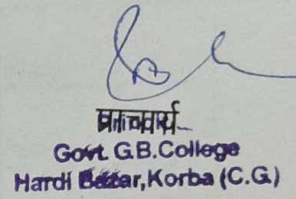 प्राचार्य
Govt. G.B.College
Hardi Bazar,Korba (C.G.)